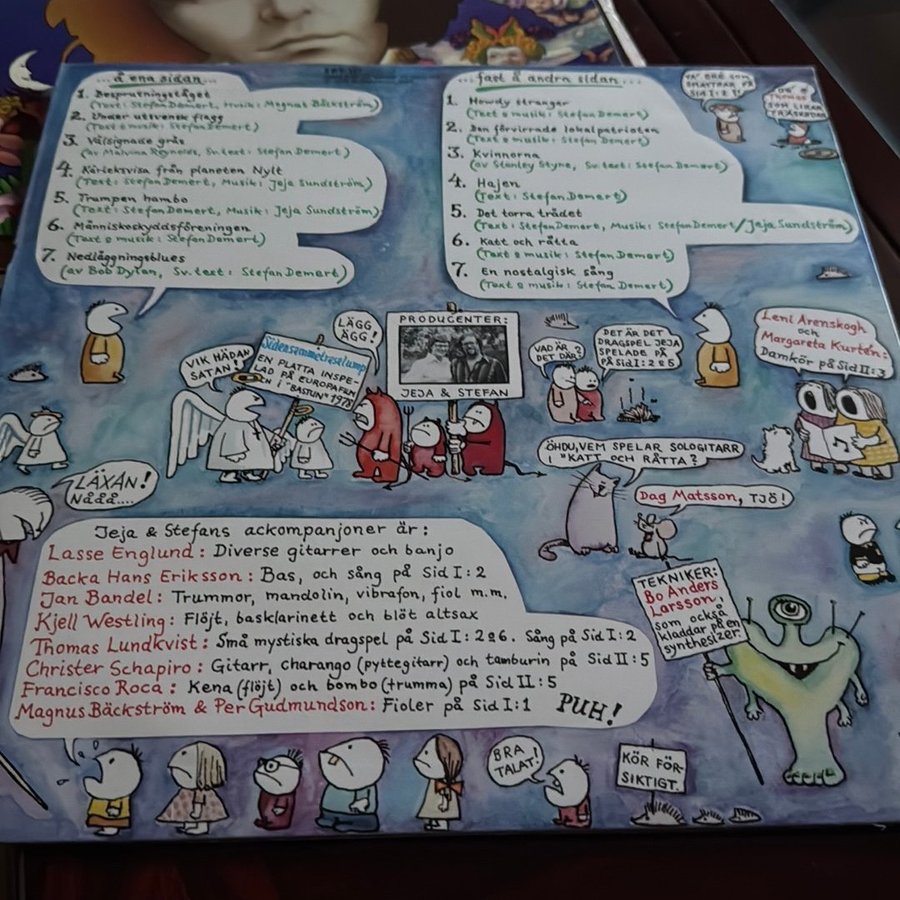 ...å ena sidan...
1. Besprutningståget
(Text: Stefan Demert, Musik: Magnus Bäckström)
2. Under utivensk flagg
(Text & musik: Stefan Demert)
3. Välsignade gräs
(av Malvina Reynolds, Sv. text: Stefan Demert)
4. Kärleksvisa från planeten Nylt
(Text: Stefan Demert, Musik: Jeja Sundström)
5. Trumpen hambo
(Text: Stefan Demert, Musik: Jeja Sundström)
6. Människoskyddsföreningen
(Text & musik: Stefan Demert)
7. Nedläggningsblues
(av Bob Dylan, Sv. text: Stefan Demert)
...fast å andra sidan...
1. Howdy stranger
(Text & musik: Stefan Demert)
2. Den förvirrade lokalpatrioten
(Text & musik: Stefan Demert)
3. Kvinnorna
(av Stanley Styne, Sv. text: Stefan Demert)
4. Hajen
(Text: Stefan Demert)
5. Det torra trädet
(Text: Stefan Demert, Musik: Stefan Demert/Jeja Sundström)
6. Katt och råtta
(Text & musik: Stefan Demert)
7. En nostalgisk sång
(Text & musik: Stefan Demert)
SOM
SMATTRAR PÅ
SID I:2?
THOMAS
SOM LIRAR
TRÄSKEDAR
VIK HÄDAN
SATAN!
Sidensammetrasalump
EN PLATTA INSPE-
LAD PÅ EUROPAFILM
I "BASTUN" 1978
LÄGG
ÄGG!
PRODUCENTER:
JEJA & STEFAN
VAD ÄR
DET DÄR?
DET ÄR DET
DRAGSPEL JEJA
SPELADE PÅ
PÅ SID I: 2 & 6
Leni Arenskogh
och
Margareta Kurtén:
Damkör på Sid II:3
LÄXAN!
NÅÅÅ....
ÖHDU, VEM SPELAR SOLOGITARR
I "KATT OCH RÅTTA?
Dag Matsson, TJÖ!
Jeja & Stefans ackompanjoner är:
Lasse Englund: Diverse gitarrer och banjo
Backa Hans Eriksson: Bas, och sång på Sid I:2
Jan Bandel: Trummor, mandolin, vibrafon, fiol m.m.
Kjell Westling: Flöjt, basklarinett och blöt altsax
Thomas Lundkvist: Små mystiska dragspel på Sid I: 2 & 6. Sång på Sid I:2
Christer Schapiro: Gitarr, charango (pyttegitarr) och tamburin på Sid II:5
Francisco Roca: Kena (flöjt) och bombo (trumma) på Sid II:5
Magnus Bäckström & Per Gudmundson: Fioler på Sid I:1
PUH!
TEKNIKER:
Bo Anders
Larsson,
som också
kladdar på en
synthesizer.
BRA
TALAT!
KÖR FÖR-
SIKTIGT.